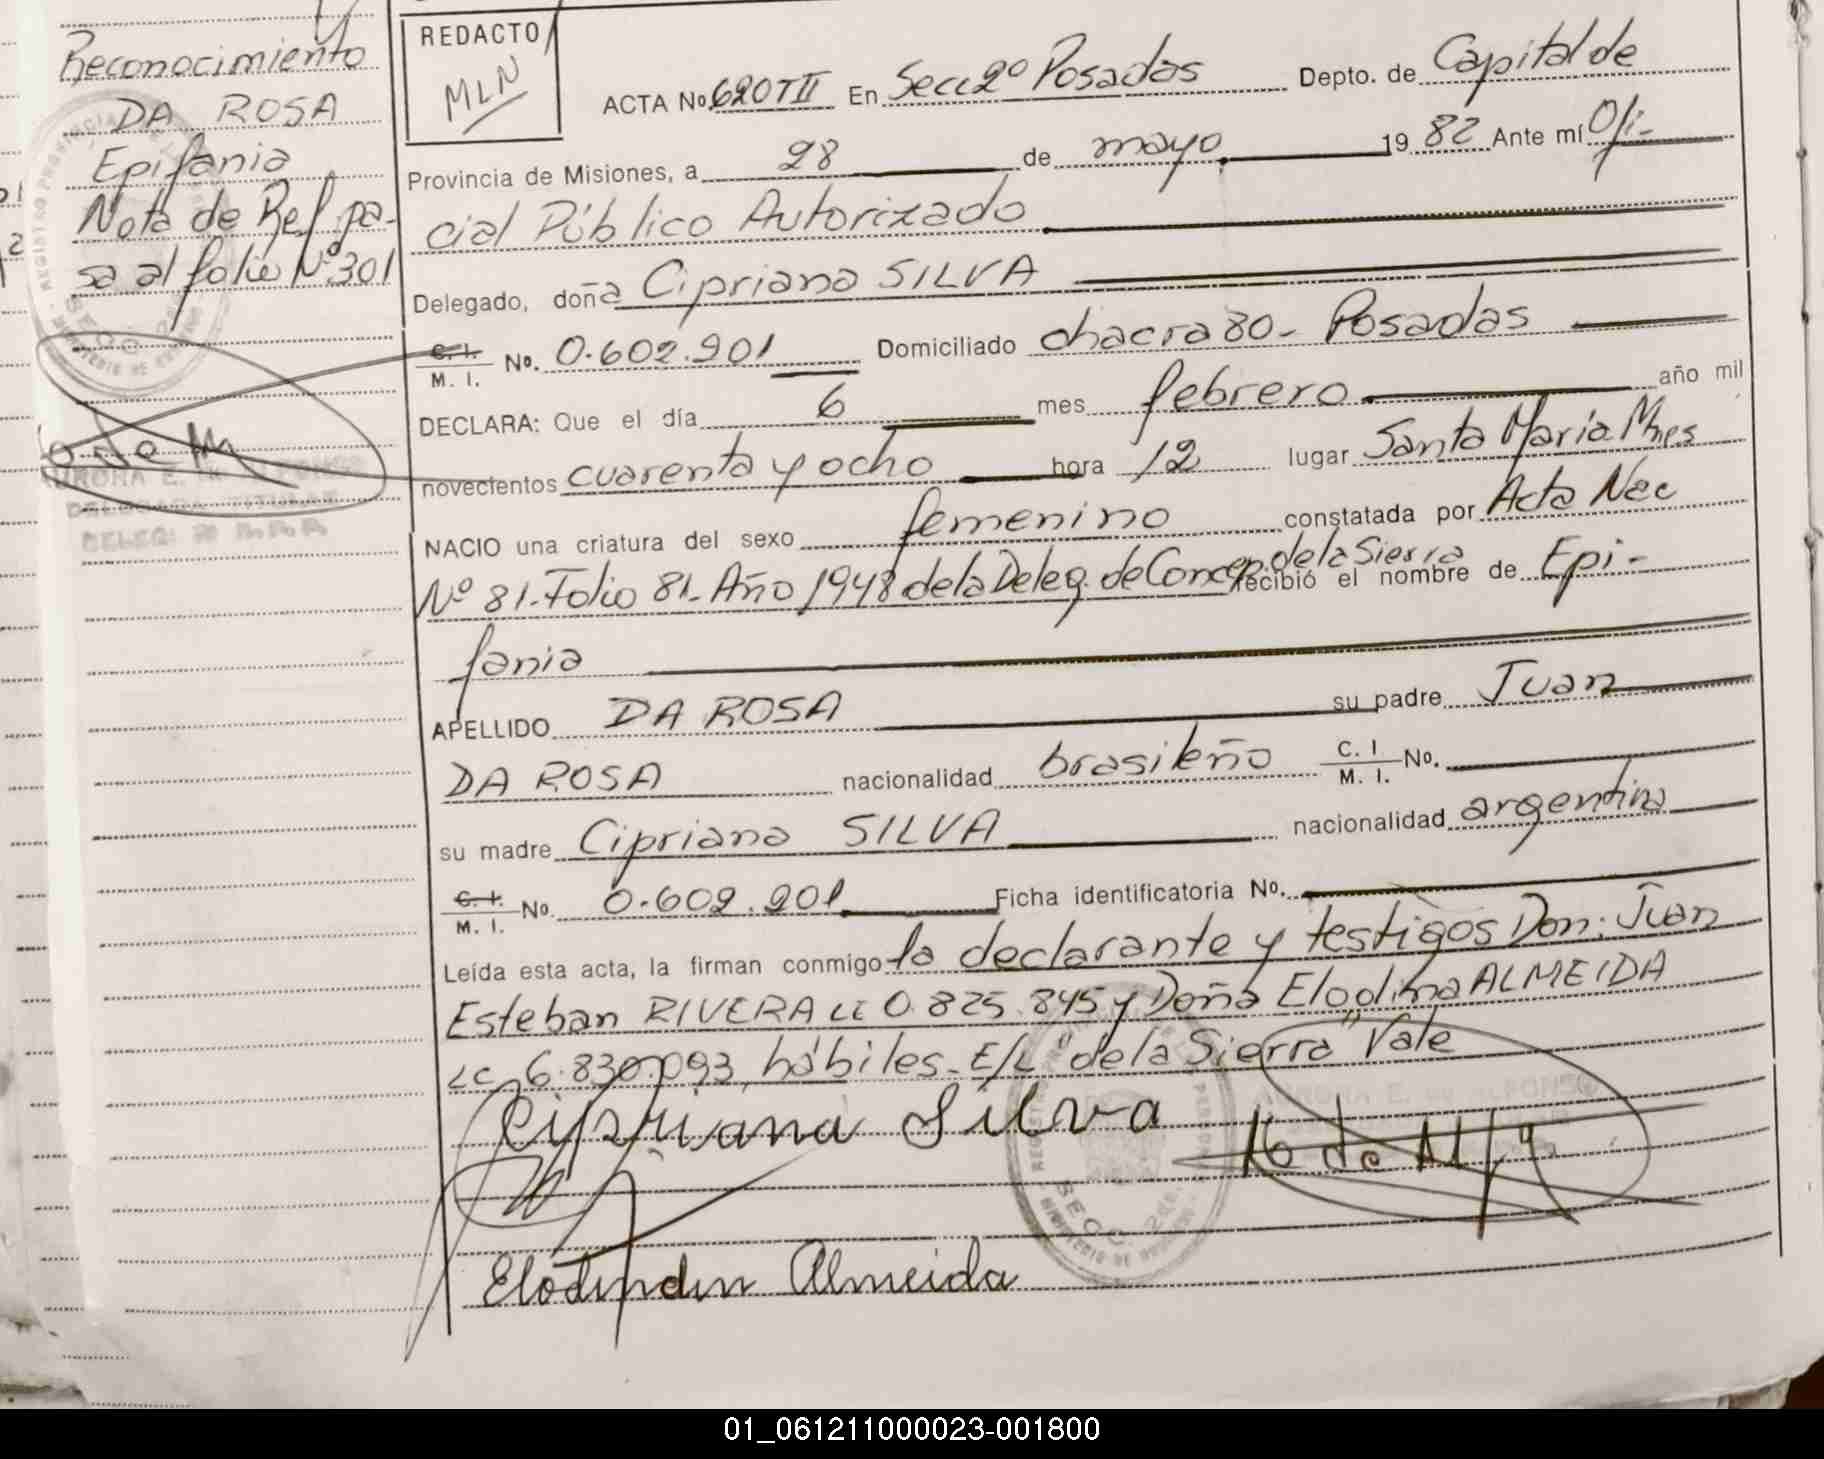 Reconocimiento
DA ROSA
Epifania
Nota de Ref. pa-
sa al folio Nº 301
REDACTO
MLN
ACTA No. 620 TII En Secc 2º Posadas Depto. de Capital de
Provincia de Misiones, a 28 de mayo 19 82 Ante mí Ofi-
cial Público Autorizado
Delegado, doña Cipriana SILVA
C. I. M. I. No. 0.602.901 Domiciliado chacra 80 - Posadas
DECLARA: Que el día 6 mes febrero año mil
novecientos cuarenta y ocho hora 12 lugar Santa María Mnes
NACIO una criatura del sexo femenino constatada por Acta Nac
Nº 81 - Folio 81 - Año 1948 de la Deleg. de Concep. de la Sierra recibió el nombre de Epi-
fania
APELLIDO DA ROSA su padre Juan
DA ROSA nacionalidad brasileño C. I. M. I. No.
su madre Cipriana SILVA nacionalidad argentina
C. I. M. I. No. 0.602.901 Ficha identificatoria No.
Leída esta acta, la firman conmigo la declarante y testigos Don: Juan
Esteban RIVERA LE 0.825.845 y Doña Elodina ALMEIDA
LC 6.830.093, hábiles. E/L "de la Sierra" Vale
Cipriana Silva
AURORA E. de ALFONSO
Almeida
01_061211000023-001800